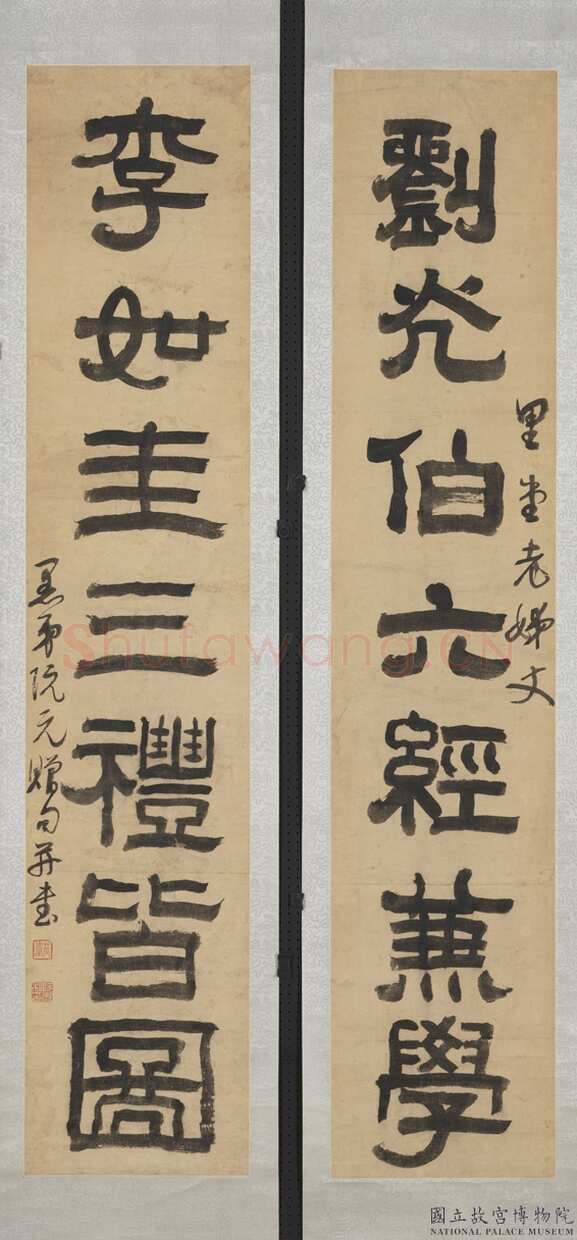 里堂老姊丈
劉光伯六經兼學
李如圭三禮皆圖
愚弟阮元贈句并書
Shufawang.CN
國立故宮博物院
NATIONAL PALACE MUSEUM